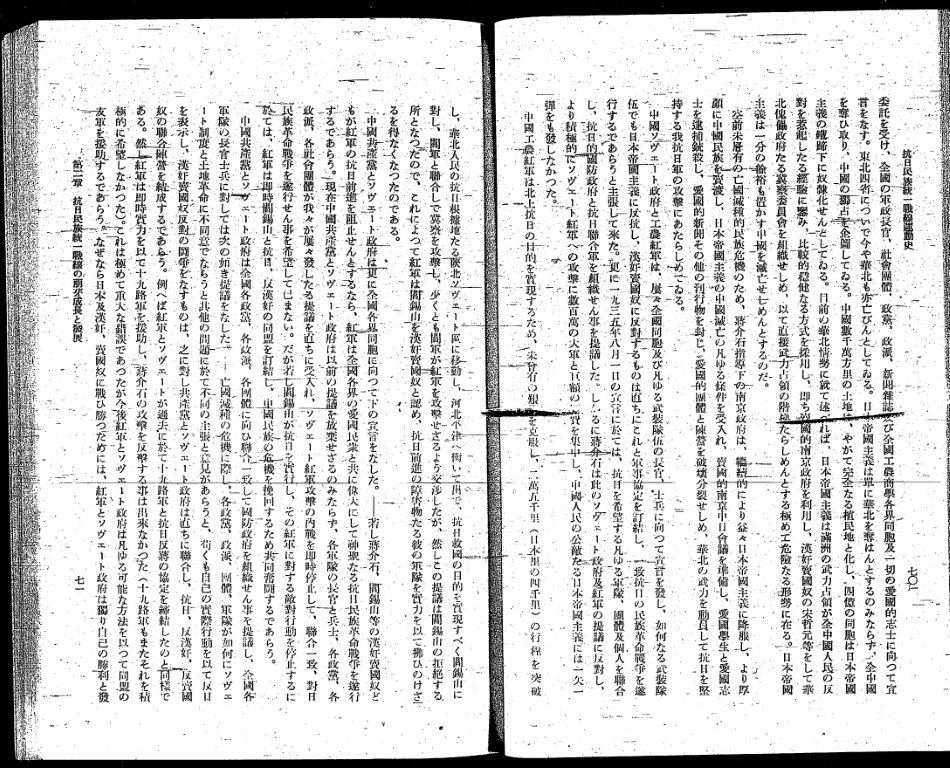 抗日民族統一戰線運動史
七〇
委託を受け、全國の軍政長官、社會團體、政黨、政派、新聞雜誌及び全國工農商學各界同胞及一切の愛國的志士に向つて宣
言をなす。東北四省について今や華北も亦亡びんとしてゐる。日本帝國主義は單に華北を奪はんとするのみならず、全中國
を奪ひ取り、中國の獨占を企圖してゐる。中國數千萬方里の土地は、やがて完全なる植民地と化し、四億の同胞は日本帝國
主義の鐵蹄下に奴隷化せんとしてゐる。目前の華北情勢に就て述べれば、日本帝國主義は滿洲の武力占領が全中國人民の反
對を惹起したる經驗に鑒み、比較的穩健なる方式を採用し、即ち賣國的南京政府を利用し、漢奸賣國奴の
北傀儡政府たる冀察委員會を組織せしめ、以て直接武力占領の階梯たらしめんとする極めて危險なる形勢に在る。日本帝國
主義は一分の餘裕も置かず中國を滅亡せしめんとするのだ。
空前未曾有の亡國滅種的民族危機のため、蔣介石指導下の南京政府は、繼續的により益々日本帝國主義に降服し、より厚
顏に中國民族を賣淺し、日本帝國主義の中國滅亡の凡ゆる條件を受入れ、賣國的南京中日會議を準備し、愛國學生と愛國志
士を逮捕銃殺し、愛國的新聞その他の刊行物を封じ、愛國的團體と陣營を破壞分裂せしめ、華北の武力を動員して抗日を堅
持する我抗日軍の攻擊にあたらしめてゐる。
中國ソヴェート政府と工農紅軍は、屢々全國同胞及び凡ゆる武裝隊伍の長官、士兵に向つて宣言を發し、如何なる武裝隊
伍でも日本帝國主義に反抗し、漢奸賣國奴に反對するものは直ちにこれと軍事協定を訂結し、一致抗日の民族革命戰爭を遂
行するであらうと主張して來た。更に一九三五年八月一日の宣言に於ては、抗日を希望する凡ゆる軍隊、團體及個人を聯合
し、抗日的國防政府と抗日聯合軍を組織せん事を提議した。しかるに蔣介石は此のソヴェート政府及紅軍の提議に反對し、
より積極的にソヴェート紅軍への攻擊に數百萬の大軍と巨額の軍費を集中し、中國人民の公敵たる日本帝國主義には一矢一
彈をも發しなかつた。
中國工農紅軍は北上抗日の目的を實現するため、未曾有の艱難を克服し、一萬五千里(日本里の四千里)の行程を突破
し、華北人民の抗日根據地たる陝北ソヴェート區に移動し、河北平津へ衝いて出で、抗日救國の目的を實現すべく閻錫山に
對し、閻軍と聯合して冀察を攻擊し、少くとも閻軍が紅軍を攻擊せざるよう交渉したが、然しこの提議は閻錫山の拒絕する
所となつたので、これによつて紅軍は閻錫山を漢奸賣國奴と認め、抗日前進の障害物たる彼の軍隊を實力を以て擊ひのけざ
るを得なくなつたのである。
中國共產黨とソヴェート政府は更に全國各界同胞に向つて下の宣言をなした。——若し蔣介石、閻錫山等の漢奸賣國奴ど
もが紅軍の抗日前進を阻止せんとするなら、紅軍は全國各界の愛國民衆と共に偉大にして神聖なる抗日民族革命戰爭を遂行
するであらう。現在中國共產黨とソヴェート政府は以前の提議を放棄せざるのみならず、各軍隊の長官と兵士、各政黨、各
政派、各社會團體が我々が屢々發したる提議を直ちに受入れ、ソヴェート紅軍攻擊の內戰を即時停止して、聯合一致、對日
民族革命戰爭を遂行せん事を希望して已まない。だが若し閻錫山が抗日を實行し、その紅軍に對する敵對行動を停止するに
於ては、紅軍は即時閻錫山と抗日、反漢奸の同盟を訂結し、中國民族の危機を挽回するため共同奮鬪するであらう。
中國共產黨とソヴェート政府は全國各政黨、各政派、各團體に向ひ聯合一致して國防政府を組織せん事を提議し、全國各
軍隊の長官士兵に對しては次の如き提議をなした——亡國滅種の危機に際し、各政黨、政派、團體、軍隊が如何にソヴェ
ート制度と土地革命に不同意でならうと其他の問題に於て不同の主張と意見があらうと、苟くも自己の實際行動を以て反日
を表示し、漢奸賣國奴反對の鬪爭をなすものは、之に對し共產黨とソヴェート政府は直ちに聯合し、抗日、反漢奸、反賣國
奴の聯合陣營を結成するであらう。例へば紅軍とソヴェートが過去に於て十九路軍と抗日反蔣の協定を締結したのと同樣で
ある。然し紅軍は即時實力を以て十九路軍を援助し、蔣介石の攻擊を反擊する事は出來なかつた(十九路軍もまたそれを積
極的に希望しなかつた)。これは極めて重大な錯誤であつたが今後紅軍とソヴェート政府は凡ゆる可能な方法を以つて同盟の
友軍を援助するであらう。なぜなら日本及漢奸、賣國奴に戰ひ勝つためには、紅軍とソヴェート政府は獨り自己の勝利と發
第二章　抗日民族統一戰線の萌芽成長と發展
七一